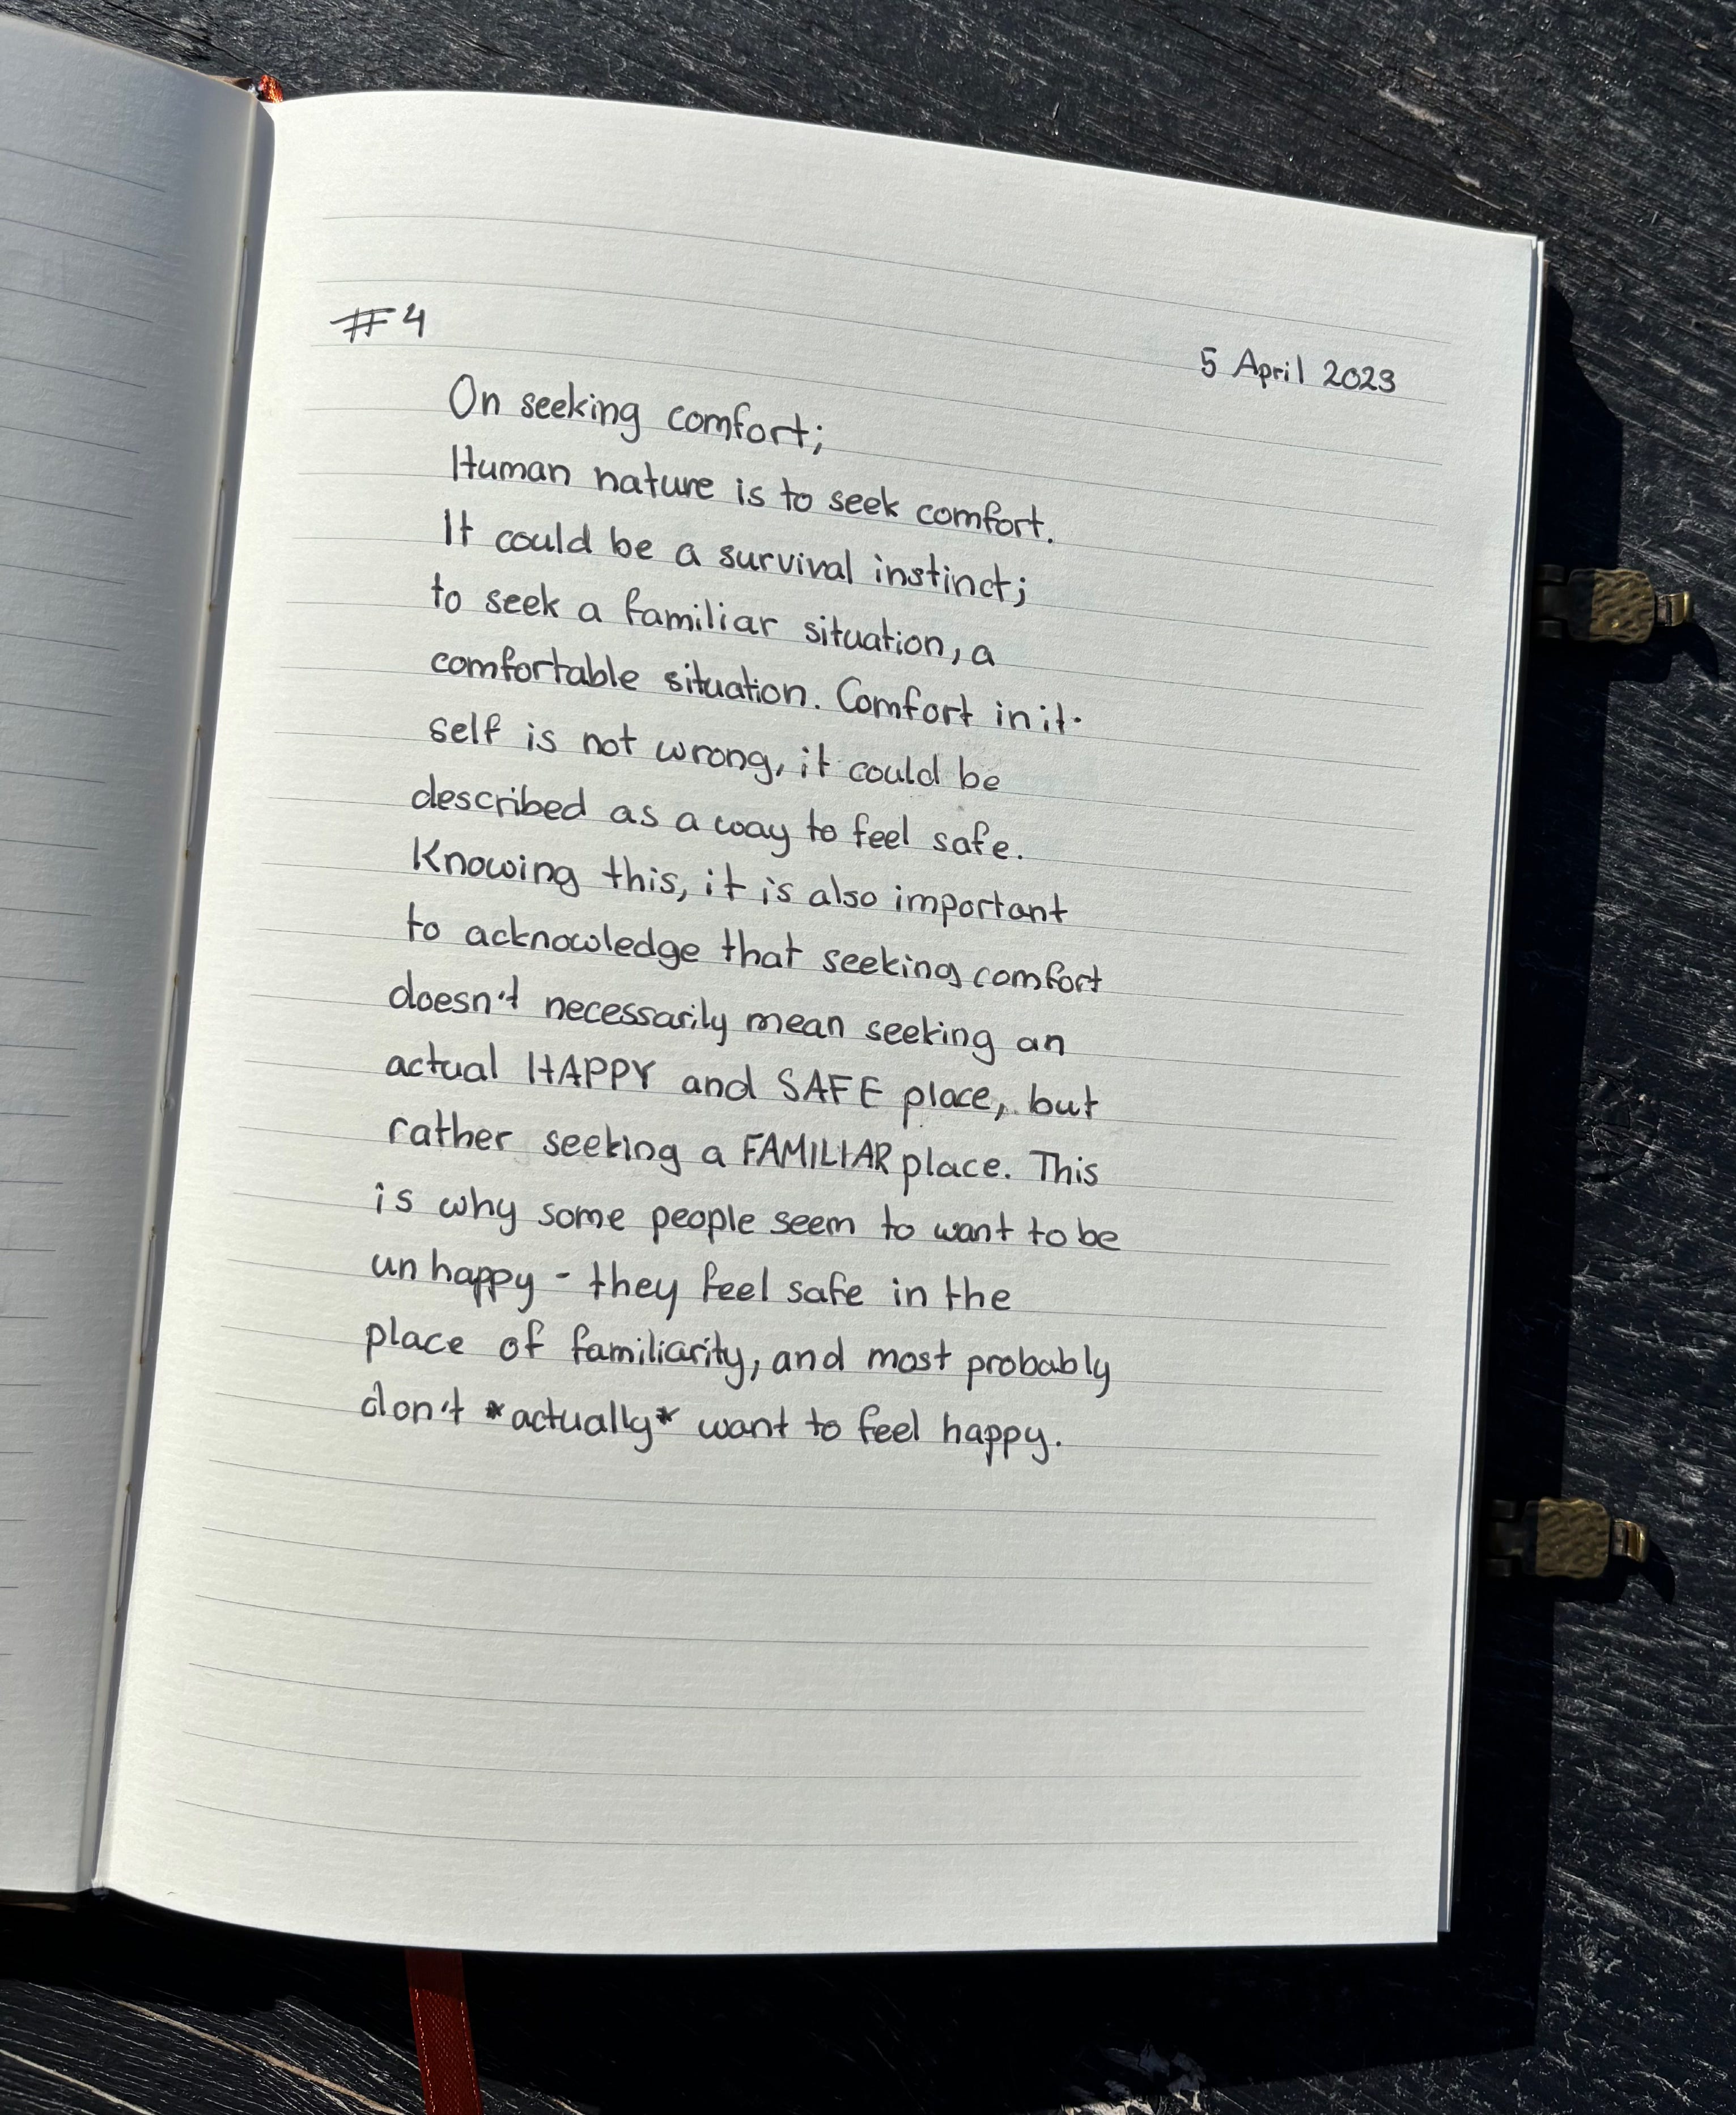 #4
5 April 2023
On seeking comfort;
Human nature is to seek comfort.
It could be a survival instinct;
to seek a familiar situation, a
comfortable situation. Comfort in it-
self is not wrong, it could be
described as a way to feel safe.
Knowing this, it is also important
to acknowledge that seeking comfort
doesn't necessarily mean seeking an
actual HAPPY and SAFE place, but
rather seeking a FAMILIAR place. This
is why some people seem to want to be
unhappy - they feel safe in the
place of familiarity, and most probably
don't *actually* want to feel happy.